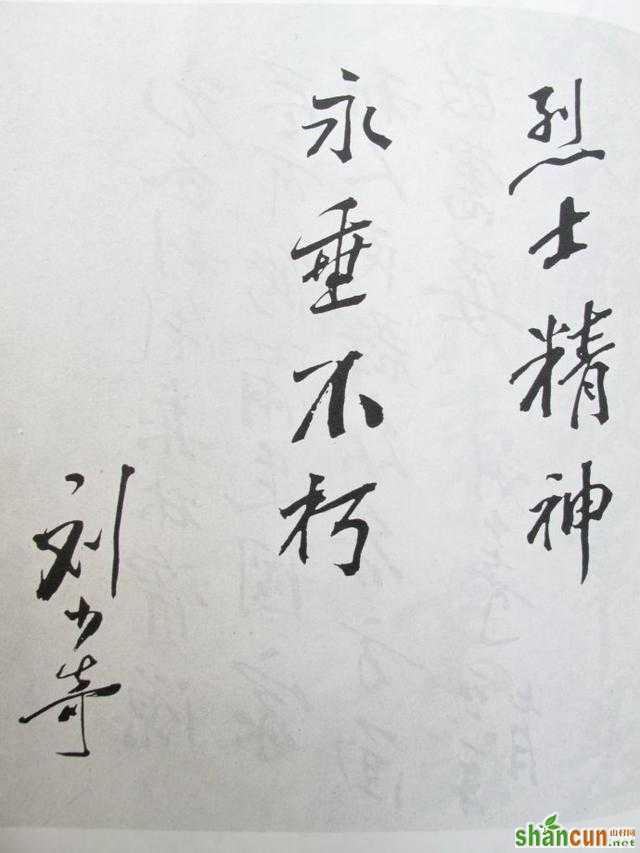 烈士精神
永垂不朽
刘少奇
shancun
山村网
.net